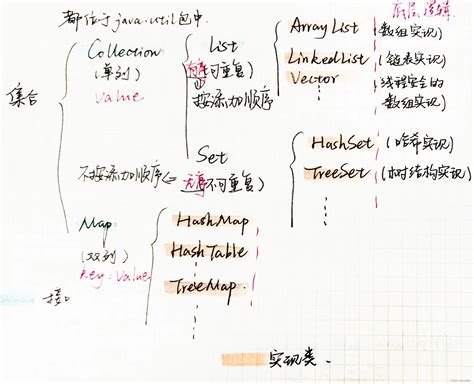 都位于java.util包中.
底层逻辑
集合
Collection
(单列)
Value
List
(有序可重复)
按添加顺序
ArrayList (数组实现)
LinkedList (链表实现)
Vector (线程安全的
数组实现)
Set
不按添加顺序 (无序不可重复)
HashSet (哈希实现)
TreeSet (树结构实现)
Map
(双列)
Key:Value
HashMap
HashTable
TreeMap
接口
实现类.